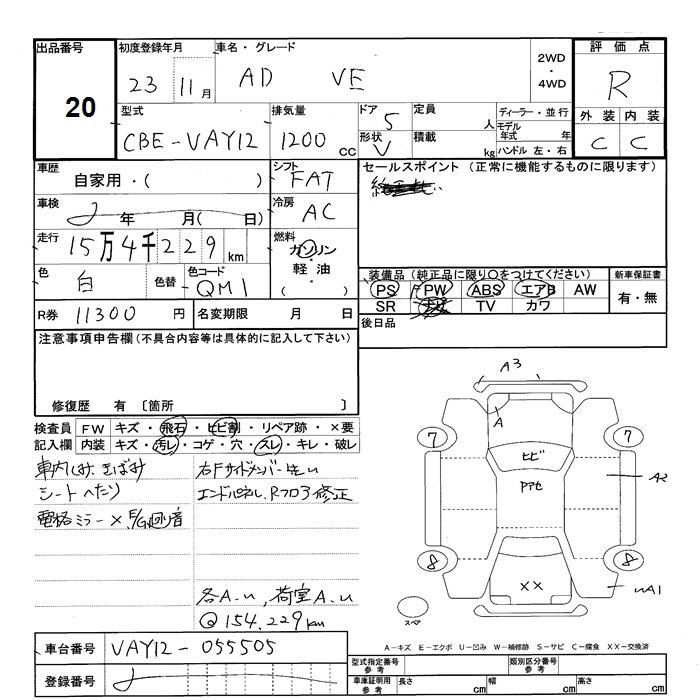 出品番号
20
初度登録年月
23 11月
車名・グレード
AD VE
2WD
・
4WD
評価点
R
型式
CBE-VAY12
排気量
1200
cc
ドア
5
形状
V
定員
人
積載
kg
ディーラー・並行
モデル年式 年
ハンドル 左・右
外装 内装
C C
車歴
自家用・( )
シフト
FAT
セールスポイント (正常に機能するものに限ります)
車検
年 月( 日)
冷房
AC
走行
15万4千229km
燃料
ガソリン
軽油
・( )
色
白
色替
色コード
QM1
装備品(純正品に限り○をつけてください)
PS PW ABS エアB AW
SR ナビ TV カワ
新車保証書
有・無
R券 11300 円
名変期限 月 日
後日品
注意事項申告欄(不具合内容等は具体的に記入して下さい)
修復歴 有 〔箇所 〕
検査員記入欄
FW キズ・飛石・ヒビ割・リペア跡・×要
内装 キズ・汚レ・コゲ・穴・スレ・キレ・破レ
車内しみ、きばみ
シートへたり
電格ミラー× E/G回り音
右Fサイドメンバー
エンドパネル、Rフロア修正
各A.U、荷室A.U
Q 154.229km
A3
A
7
7
ヒビ
Pアセ
A2
8
8
××
A1
スペア
A-キズ E-エクボ U-凹み W-補修跡 S-サビ C-腐食 XX-交換済
車台番号
VAY12-055505
登録番号
型式指定番号
参考
類別区分番号
参考
車庫証明用
参考
長さ cm
幅 cm
高さ cm